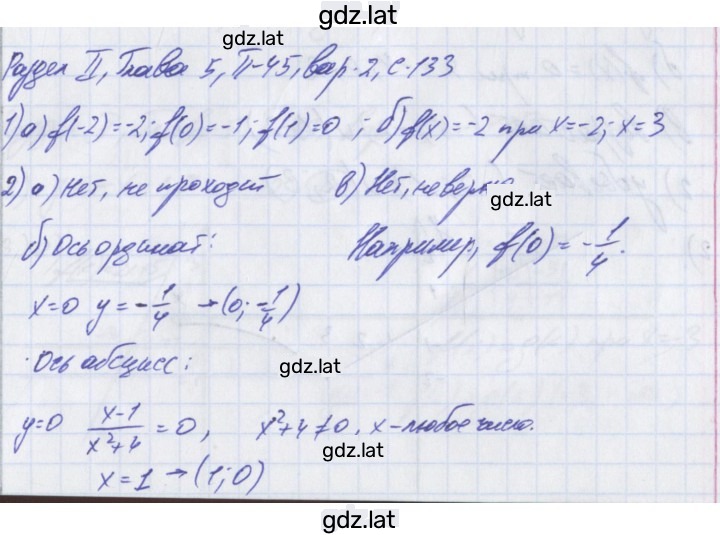 gdz.lat
gdz.lat
Раздел II, Глава 5, П-45, вар. 2, с. 133
1) а) f(-2)=-2; f(0)=-1; f(1)=0 ; б) f(x)=-2 при x=-2; x=3
2) а) Нет, не проходит в) Нет, неверно
gdz.lat
б) Ось ординат: Например, f(0)=-1/4.
x=0 y=-1/4 → (0; -1/4)
gdz.lat
Ось абсцисс:
gdz.lat
y=0 (x-1)/(x²+4) = 0, x²+4≠0, x - любое число.
gdz.lat
x=1 → (1; 0)
gdz.lat